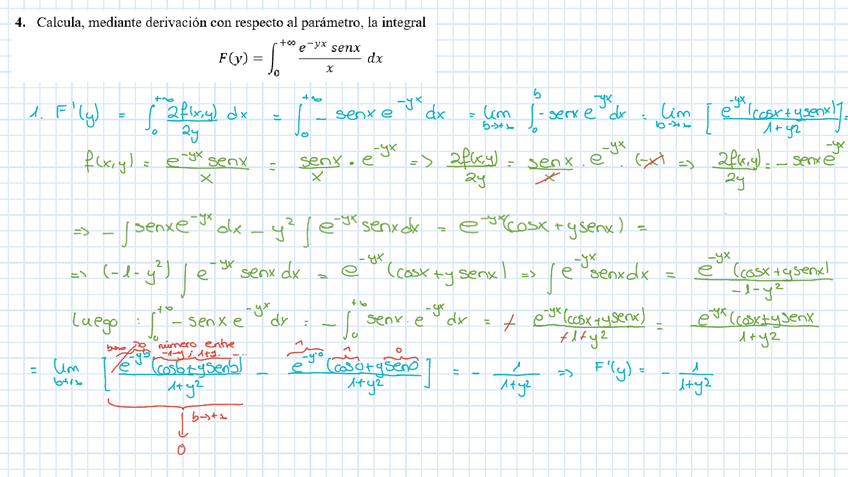 4. Calcula, mediante derivación con respecto al parámetro, la integral
F(y) = ∫₀^{+∞} e^{-yx} senx / x dx
1. F'(y) = ∫₀^{+∞} 2f(x,y)/2y dx = ∫₀^{+∞} - senx e^{-yx} dx = lim_{b→+∞} ∫₀^b - senx e^{-yx} dx = lim_{b→+∞} [ e^{-yx} (cosx + ysenx) / 1+y² ] =
f(x,y) = e^{-yx} senx / x = senx / x · e^{-yx} => 2f(x,y)/2y = senx / x · e^{-yx} · (-x) => 2f(x,y)/2y = - senx e^{-yx}
=> - ∫ senx e^{-yx} dx - y² ∫ e^{-yx} senx dx = e^{-yx} (cosx + ysenx) =
=> (-1-y²) ∫ e^{-yx} senx dx = e^{-yx} (cosx + ysenx) => ∫ e^{-yx} senx dx = e^{-yx} (cosx + ysenx) / -1-y²
Luego : ∫₀^{+∞} - senx e^{-yx} dx = - ∫₀^{+∞} senx · e^{-yx} dx = - e^{-yx} (cosx + ysenx) / +1+y² = e^{-yx} (cosx + ysenx / 1+y²
número entre
-1-y y 1+y
1 1 0
= lim_{b→+∞} [ e^{-yb} (cosb + ysenb) / 1+y² - e^{-y·0} (cos0 + ysen0) / 1+y² ] = - 1 / 1+y² => F'(y) = - 1 / 1+y²
b→+∞
0